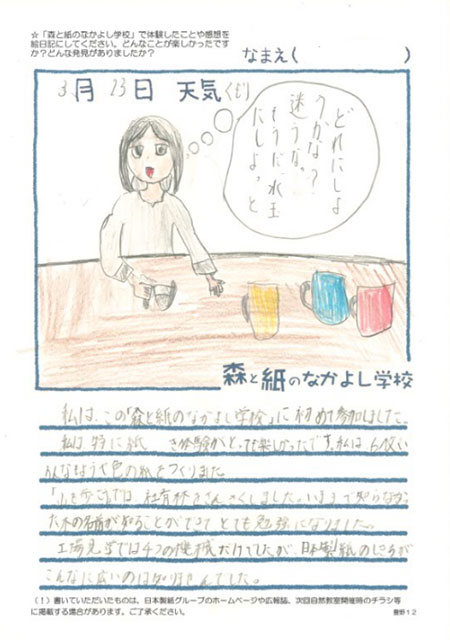 ☆「森と紙のなかよし学校」で体験したことや感想を
絵日記にしてください。どんなことが楽しかったです
か？どんな発見がありましたか？
なまえ(　　　　)
3月 23日 天気
どれにしよ
うかな？
迷うな。
そうだ、水玉
にしよっと
森と紙のなかよし学校
私は、この「森と紙のなかよし学校」に初めて参加しました。
私は特に紙 き体験がとっても楽しかったです。私は、
もようや色の紙をつくりました
では、社有林をさんさくしました。いままで知らなかっ
た木の名前が知ることができて とても勉強になりました。
工場見学では4つの機械だけでしたが、日本製紙の
こんなに広いのは知りませんでした。
（！）書いていただいたものは、日本製紙グループのホームページや広報誌、次回自然教室開催時のチラシ等
に掲載する場合があります。ご了承ください。
菅野12